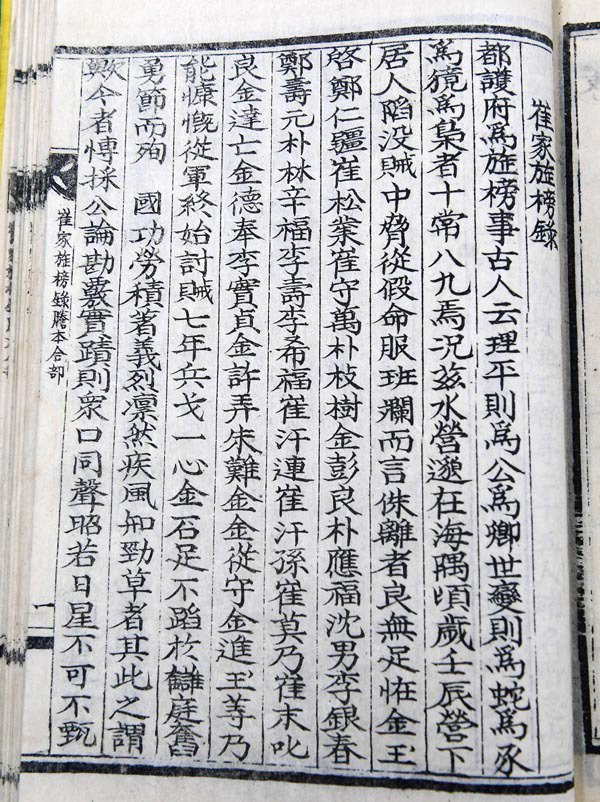 崔家旌榜錄
都護府爲旌榜事古人云理平則爲公爲卿世變則爲蛇爲豕
爲獍爲梟者十常八九焉况玆水營邈在海隅頃歲壬辰營下
居人陷没賊中脅從假命服班斕而言侏離者良無足恠金玉
啓鄭仁疆崔松業崔守萬朴枝樹金彭良朴應福沈男李銀春
鄭壽元朴林辛福李壽李希福崔汗連崔汗孫崔莫乃崔末叱
良金達亡金德奉李實貞金許弄宋難金金從守金進玉等乃
能慷慨從軍終始討賊七年兵戈一心金石足不蹈於讎庭奮
勇節而殉 國功勞積著義烈凛然疾風知勁草者其此之謂
歟今者愽採公論勘覈實蹟則衆口同聲昭若日星不可不甄
崔家旌榜錄謄本合部
一